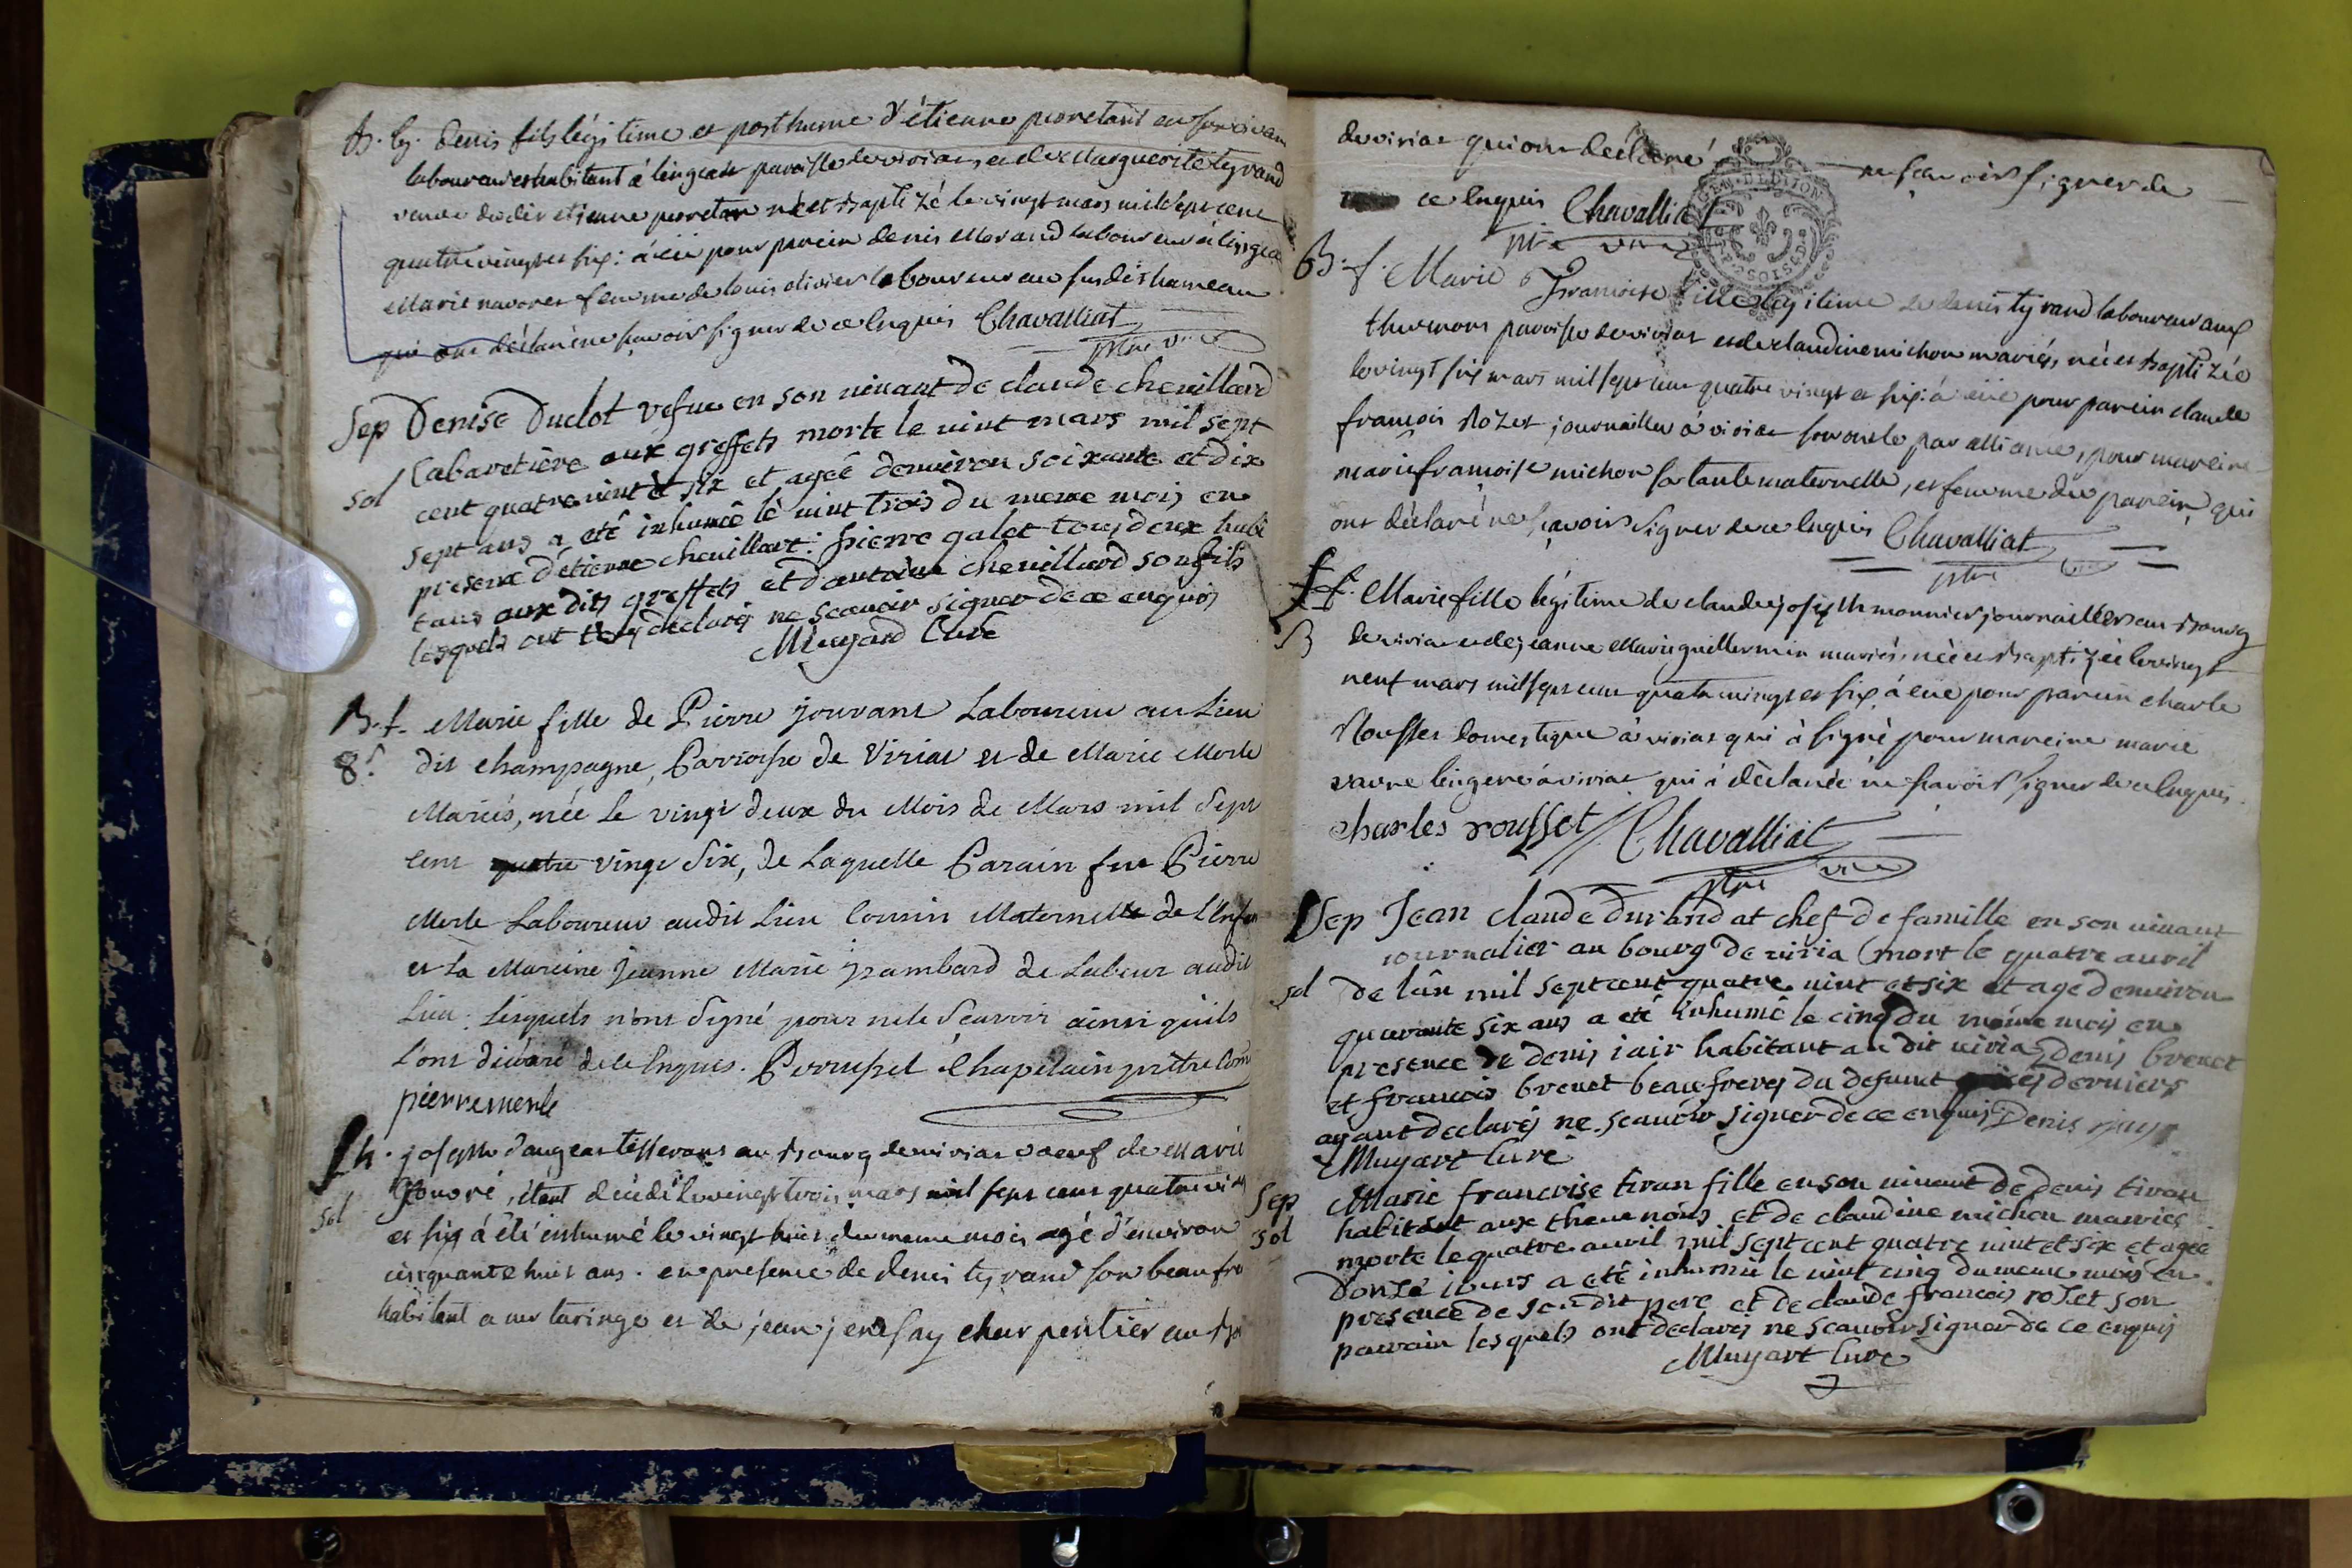 B. g. denis fils légitime et posthume d'étienne perretant en son vivan
laboureur et habitant à lingeat paroisse de viriat, et de Marguerite tyrand
veuve du dit etienne perretan né et baptizé le vingt mars mil sept cent
quatre vingt et six : à èüe pour parein denis Morand laboureur à lingea
Marie navoret femme de louis olivier laboureur au susdit hameau
qui ont déclaré ne sçavoir signer de ce Enquis Chavalliat
ptre vic
Sep Denise Duclot vefue en son uiuant de claude cheuillard
Cabaretière aux greffets morte le uint mars mil sept
sol cent quatre uint et six et ageé denuiron soixante et dix
sept ans a eté inhumeé le uint trois du meme mois en
presence d'étienne cheuillart : pierre galet tous deux habi
tans aux dits greffets et d'antoine cheuillard son fils
lesquels ont declarés ne sceauoir signer de ce enquis
Muyard Curé
B. f. Marie fille de Pierre jouvant Laboureur au Lieu
8.e dit champagne, Parroisse de Viriat et de Marie Merle
Mariés, née le vingt deux du Mois de Mars mil Sept
Cent quatre vingt Six, de Laquelle Parain fut Pierre
Merle Laboureur audit Lieu Cousin Maternelle de L'Enfa
et La Mareine Jeanne Marie jrambard de Labeur audit
Lieu : Lesquels n'ont Signé pour ne le Scavoir ainsi qu'ils
L'ont déclaré de ce Enquis. Perrusset Chapelain prêtre Com
pierre merle
S h. joseph dangeat tisserand au Bourg de viriat vaeuf de Marie
sol Honoré, étant décédé le vingt trois mars mil sept cent quatre vin
et six à èté inhumé le vingt huit du meme mois agé d'environ
cinquante huit ans. en presence de denis tyrand son beau fre
habitant a meitaringe et de jean jenesay charpentier au bo
de viriat qui ont déclaré ne sçavoir signer de
ce Enquis Chavalliat
ptre vic
GEN. DE DIJON
B. f. Marie Francoise fille légitime de denis tyrand laboureur aux
thevenons paroisse de viriat et de claudine michon mariés, née et baptizée
le vingt six mars mil sept cent quatre vingt et six : à èüe pour parein claude
françois Rozet journaillier à viriat son oncle par alliance, pour mareine
marie françoise michon sa tante maternelle, et femme du parein, qui
ont déclaré ne sçavoir Signer de ce Enquis Chavalliat
ptre vic
f. Marie fille légitime de claude joseph monnier journaillier au bourg
B de viriat et de jeanne Marie guillermin mariés, née et baptizée le vingt
neuf mars mil sept cent quatre vingt et six, à eüe pour parein charle
Rousset domestique à viriat qui à signé pour mareine marie
vavre lingere à viriat qui à déclarée ne scavoir signer de ce Enquis
charles rousset Chavalliat
ptre vic
Sep Jean claude durand at chef de famille en son uiuant
iournalier au bourg de viria mort le quatre auril
sol de l'an mil sept cent quatre uint et six et agé denuiron
quarante six ans a eté inhumé le cinq du même mois en
presence de denis iair habitant au dit uiria, denis brenet
et francois brenet beaufreres du defunt ces derniers
ayant declarés ne sceauoir signer de ce enquis Denis
Muyart Curé
Sep Marie francoise tiran fille en son uiuant de denis tiran
sol habitant aux theuenons et de claudine michon mariés
morte le quatre auril mil sept cent quatre uint et six et agée
donze iours a eté inhumée le uint cinq du meme mois en
presence de son dit pere et de claude francois roset son
parrain lesquels ont declarés ne sceauoir signer de ce enquis
Muyart Curé